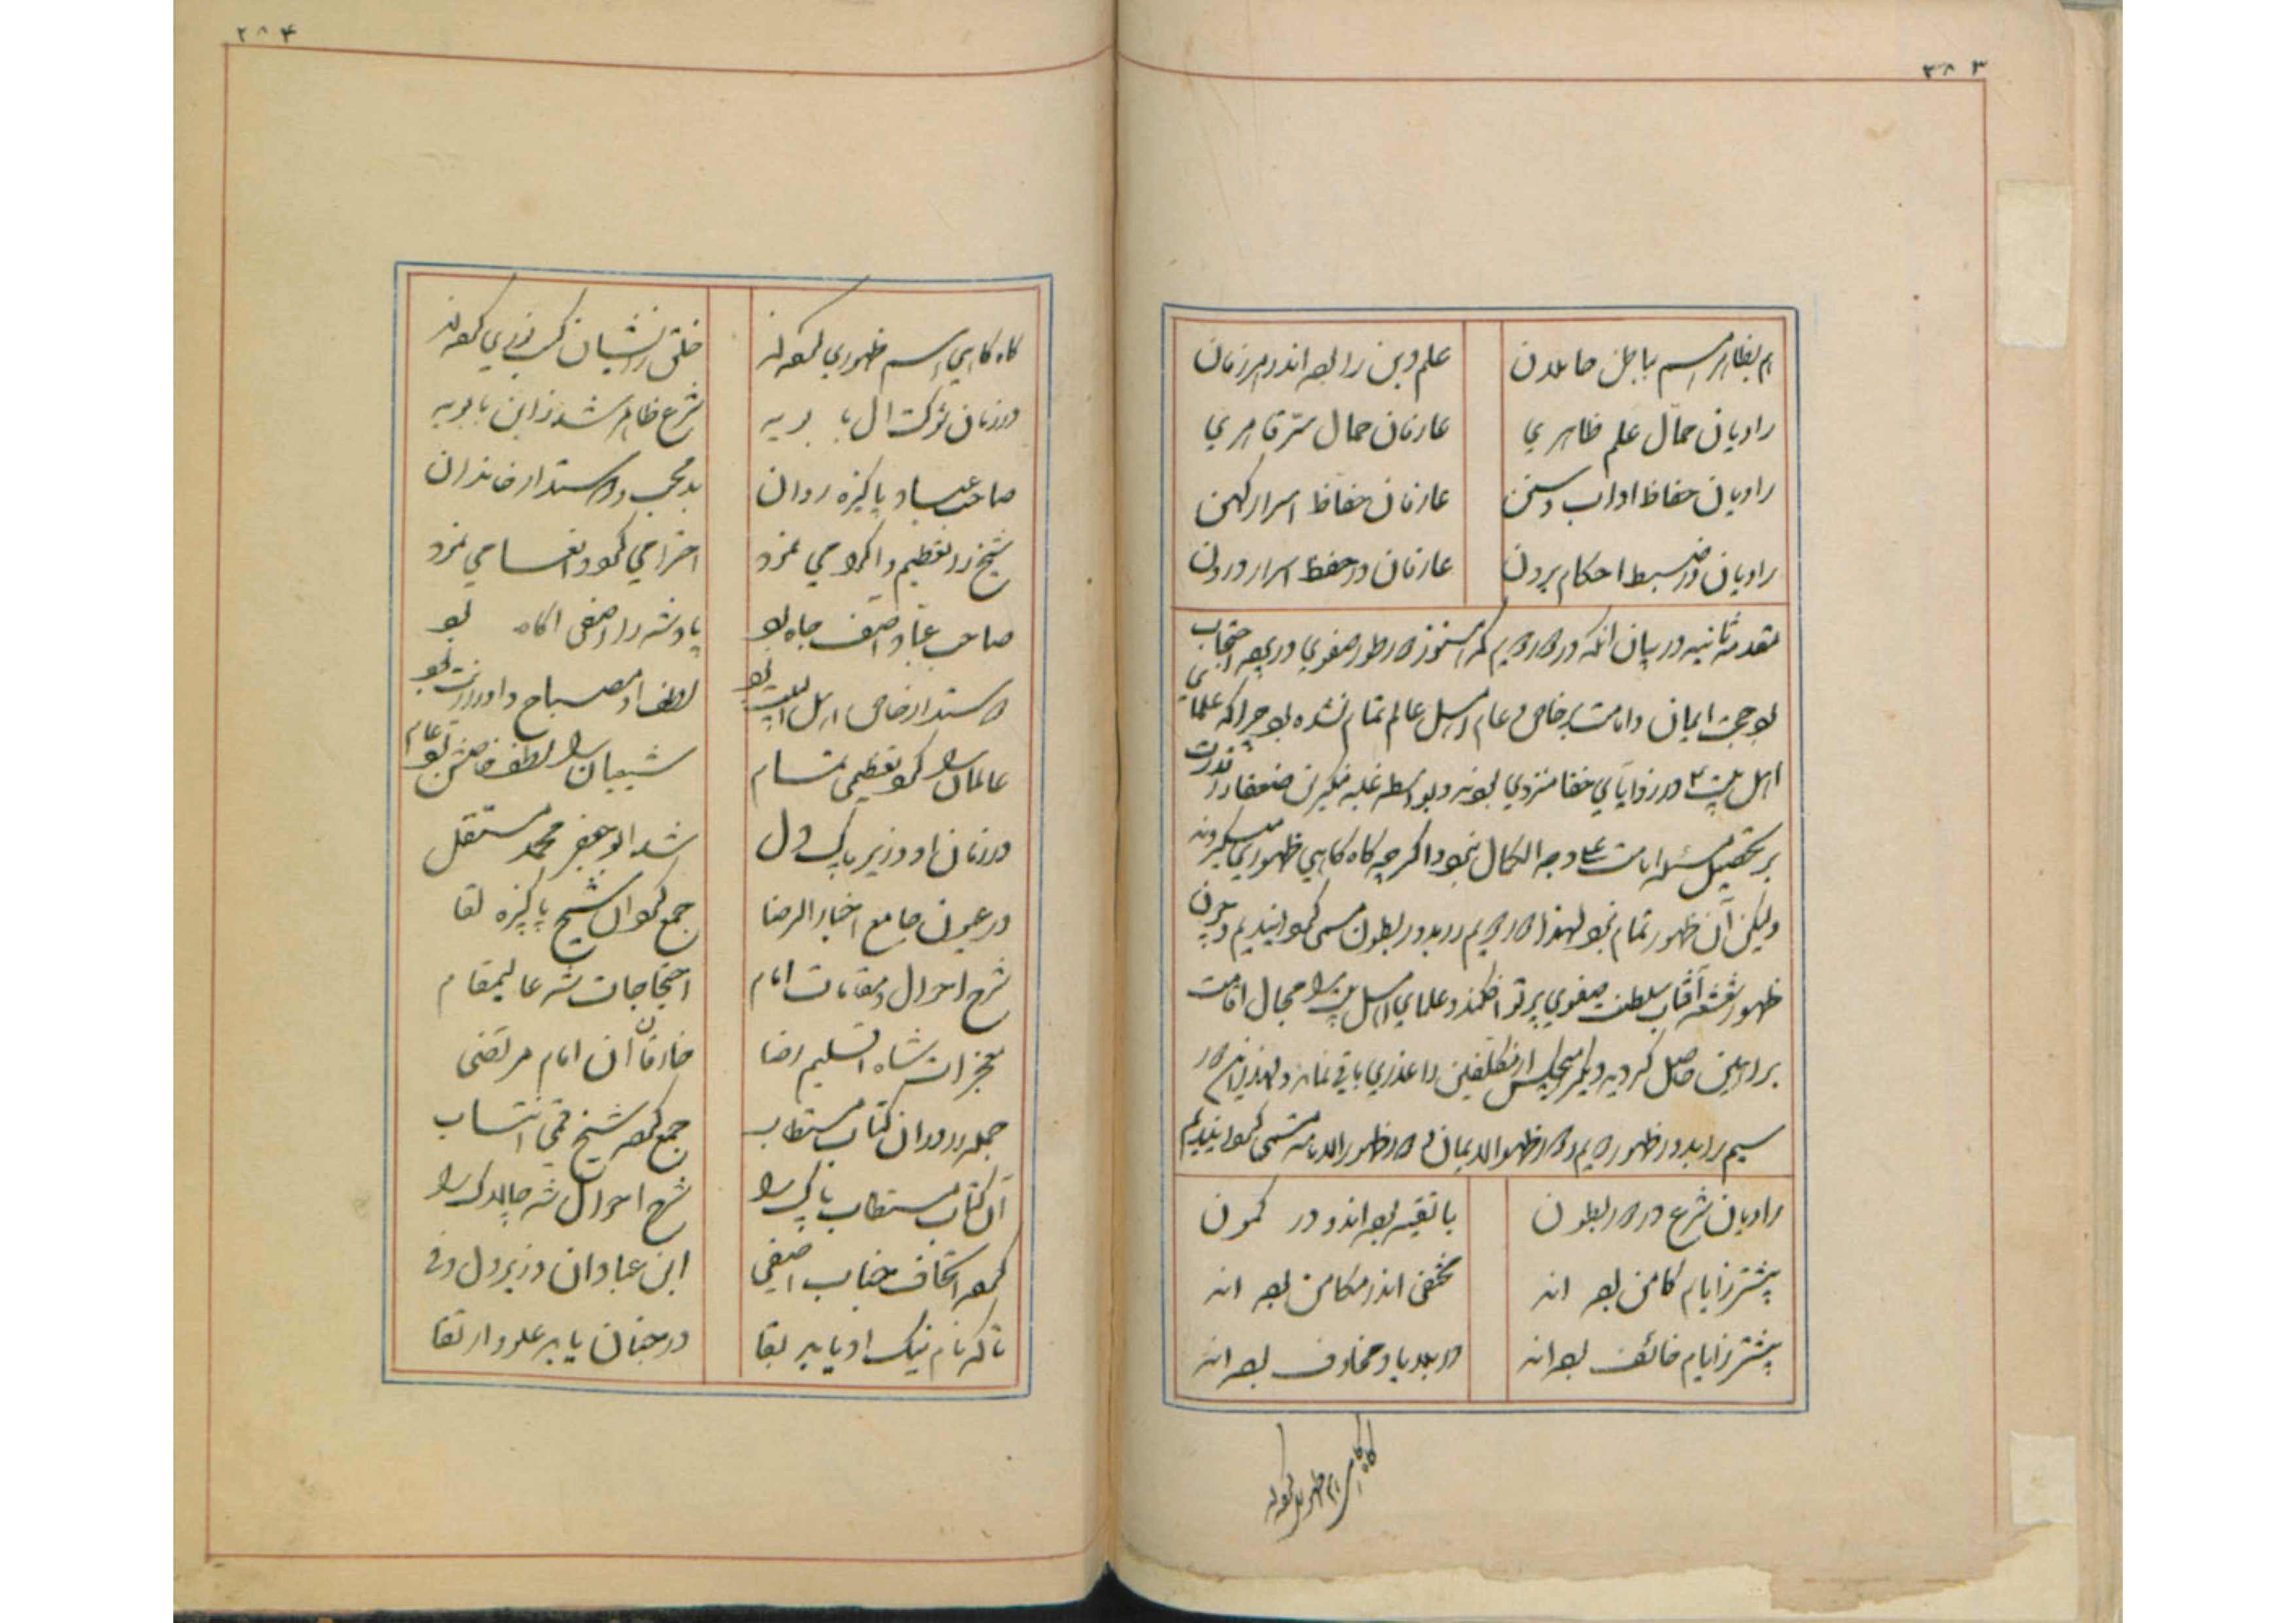 ۲۸۳
هم بظاهر هم بباطن حاملان علم دین را بوده‌اند در هر زمان
راویان حمّال علم ظاهری عارفان حمال سرّ قاهری
راویان حفاظ اداب و سنن عارفان حفاظ اسرار کهن
راویان در ضبط احکام برون عارفان در حفظ اسرار درون
مقدمه ثانیه در بیان انکه در دوره دویم که هنوز دور طور صفوی در پرده احتجاب
بود حجت ایمان و امامت بر خاص و عام اهل عالم تمام نشده بود چرا که علمای
اهل بیت ع در زوایای خفا منزوی بودند و بواسطه غلبه منکرین ضعفا را قدرت
بر تحصیل مسئله امامت علی وجه الکمال نبود و اکرچه کاه کاهی ظهوری میکردند
ولیکن آن ظهور تمام نبود لهذا دوره دویم را بدور بطون مسمی کردانیدیم و چون
ظهور شعشعه آفتاب سلطنت صفوی پرتو افکند و علمای اهل بیت را مجال اقامت
براهین حاصل کردید و دیکر هیچکس از مکلفین را عذری باقی نماند و لهذا دور
سیم را بدور ظهور و دور ظهور الایمان و دور ظهور الامامه مسمی کردانیدیم
راویان شرع در دور بطون با تقیه بوده‌اند و در کمون
پیشتر زایام کامن بوده اند مختفی اندر مکامن بوده اند
پیشتر زایام خائف بوده‌اند در بلاد و مخاوف بوده‌اند
کاه کاهی هم ظهوری کرده‌اند
۲۸۴
کاه کاهی هم ظهوری کرده‌اند خلق را نشان کسب نوری کرده‌اند
در زمان شوکت ال بابویه شرع ظاهر شد ز ابن بابویه
صاحب عباد پاکیزه روان بد محب و دوستدار خاندان
شیخ را تعظیم و اکرام می نمود احترامی کرد و انعامی نمود
صاحب عباد اصف جاه بود پادشه را اصفی اکاه بود
دوستدار خاص اهل البیت بود لطف او مصباح و او را زیت بود
عالمان را کرد تعظیمی تمام شیعیان را لطف خاصش بود عام
در زمان او وزیر پاک دل شد ابوجعفر محمد مستقل
در عیون جامع اخبار الرضا جمع کرد آن شیخ پاکیزه لقا
شرح احوال و مقامات امام احتجاجات شه عالیمقام
معجزات شاه اقلیم رضا خارقات آن امام مرتضی
جمله را در آن کتاب مستطاب جمع کرده شیخ قمی انتساب
آن کتاب مستطاب پاک را شرح احوال شه چالاک را
کرده اتحاف جناب اصفی ابن عباد آن وزیر دل وفی
تا که نام نیک او یابد بقا در جنان یابد علو و ارتقا